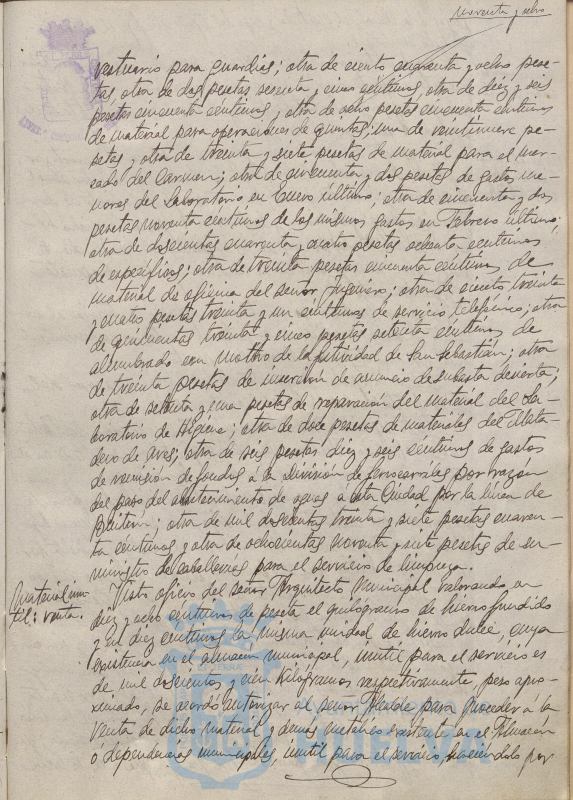 Noventa y ocho
vestuario para guardias; otra de ciento cuarenta y ocho pese-
tas, otra de dos pesetas sesenta y cinco céntimos, otra de diez y seis
pesetas cincuenta céntimos, otra de ocho pesetas cincuenta céntimos
de material para operaciones de quintas; una de veintinueve pe-
setas y otra de treinta y siete pesetas de material para el mer-
cado del Carmen; otra de cincuenta y dos pesetas de gastos me-
nores del Laboratorio en Enero último; otra de cincuenta y dos
pesetas noventa céntimos de los mismos gastos en Febrero último;
otra de doscientas cuarenta y cuatro pesetas ochenta céntimos
de específicos; otra de treinta pesetas cincuenta céntimos de
material de oficina del señor Ingeniero; otra de ciento treinta
y cuatro pesetas treinta y un céntimos de servicio telefónico; otra
de quinientas treinta y cinco pesetas setenta céntimos de
alumbrado con motivo de la festividad de San Sebastián; otra
de treinta pesetas de inserción de anuncio de subasta desierta;
otra de setenta y una pesetas de reparación del material del La-
boratorio de Higiene; otra de doce pesetas de materiales del Mata-
dero de aves; otra de seis pesetas diez y seis céntimos de gastos
de remisión de fondos á la División de ferrocarriles por razón
del paso del abastecimiento de aguas a esta Ciudad por la línea de
otra de mil doscientas treinta y siete pesetas cuaren-
ta céntimos y otra de ochocientas noventa y siete pesetas de su-
ministro de caballerías para el servicio de limpieza.
Material inu-
til: venta.
Visto oficio del señor Arquitecto Municipal valorando en
diez y ocho céntimos de peseta el quilogramo de hierro fundido
y en diez céntimos la misma unidad, de hierro dulce, cuya
existencia en el almacén municipal, inutil para el servicio es
de mil doscientos y cien kilógramos respectivamente, pero apro-
ximado, se acordó autorizar al señor Alcalde para proceder á la
venta de dicho material y demás metálico existente en el Almacén
ó dependencias municipales, inutil para el servicio, haciéndolo por